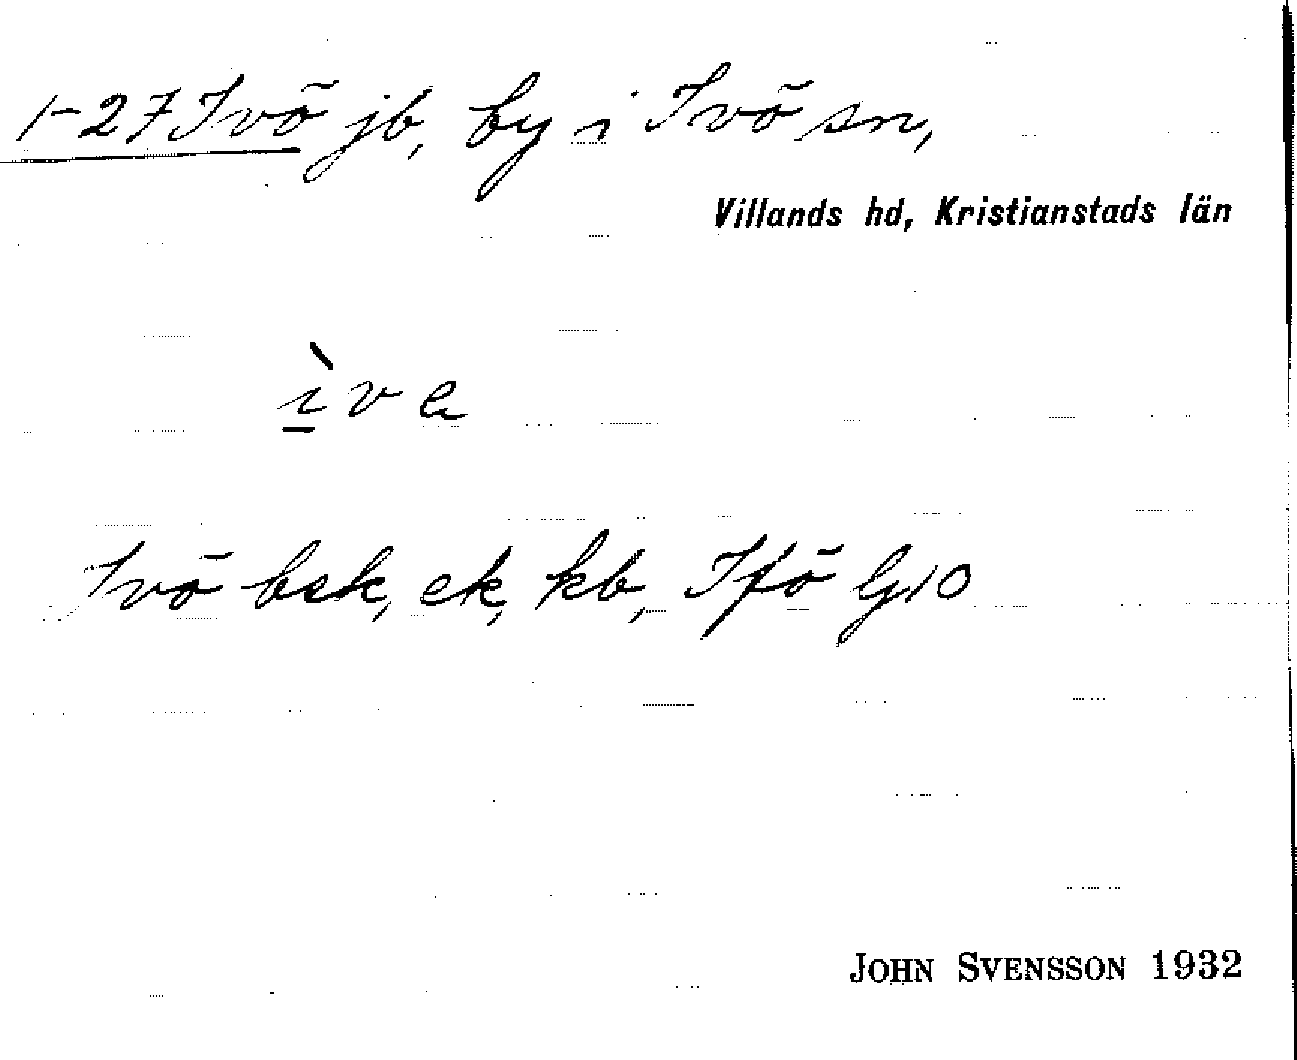 1-27 Ivö jb, by i Ivö sn,
Villands hd, Kristianstads län
ìve
Ivö bsk, ek, kb, Ifö Gj10
JOHN SVENSSON 1932